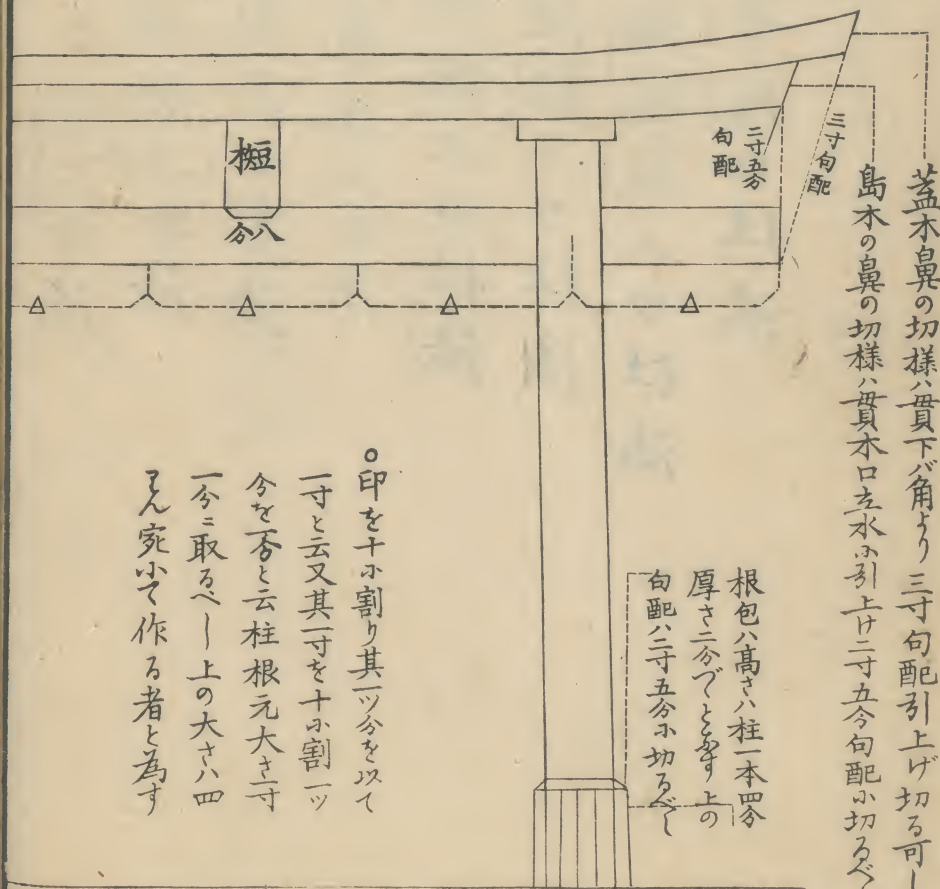 蓋木鼻の切様ハ貫下バ角より三寸勾配引上げ切る可し
島木の鼻の切様ハ貫木口立水ニ引上け二寸五分勾配ニ切るべ
三寸勾配
二寸五分
勾配
短
八分
根包ハ高さハ柱一本四分
厚さ二分づゝとなす上の
勾配ハ二寸五分ニ切るべし
○印を十ニ割り其一ツ分を以て
一寸と云又其一寸を十ニ割一ツ
分を一分と云柱根元大さ一寸
一分ニ取るべし上の大さハ四
宛ニて作る者と為す